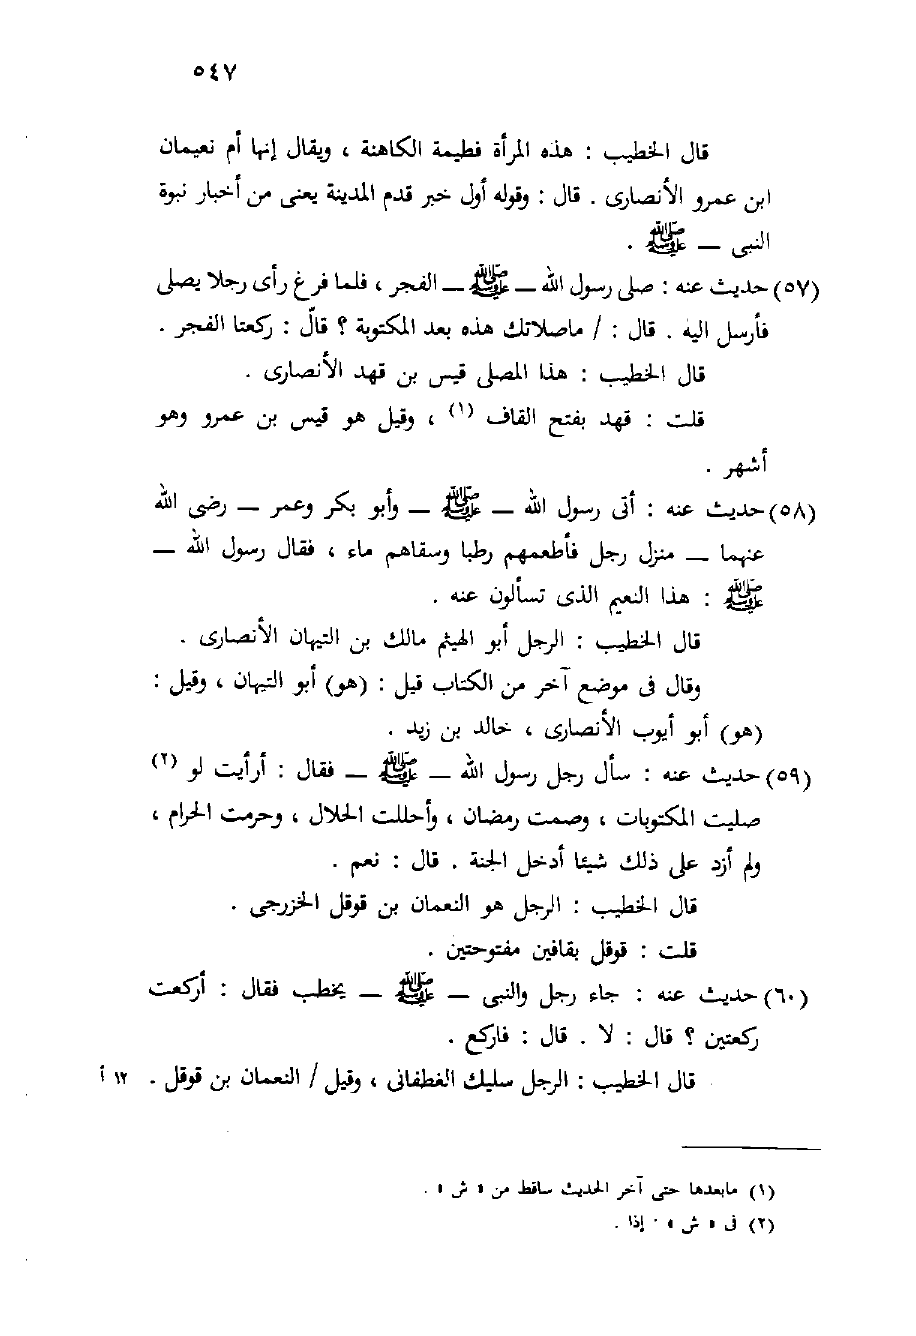 ٥٤٧
قال الخطيب : هذه المرأة فطيمة الكاهنة ، ويقال إنها أم نعيمان
ابن عمرو الأنصارى . قال : وقوله أول خبر قدم المدينة يعنى من أخبار نبوة
النبى — ﷺ .
(٥٧) حديث عنه : صلى رسول الله — ﷺ — الفجر ، فلما فرغ رأى رجلا يصلى
فأرسل اليه . قال : / ماصلاتك هذه بعد المكتوبة ؟ قال : ركعتا الفجر .
قال الخطيب : هذا المصلى قيس بن قهد الأنصارى .
قلت : قهد بفتح القاف (١) ، وقيل هو قيس بن عمرو وهو
أشهر .
(٥٨) حديث عنه : أتى رسول الله — ﷺ — وأبو بكر وعمر — رضى الله
عنهما — منزل رجل فأطعمهم رطبا وسقاهم ماء ، فقال رسول الله —
ﷺ : هذا النعيم الذى تسألون عنه .
قال الخطيب : الرجل أبو الهيثم مالك بن التيهان الأنصارى .
وقال فى موضع آخر من الكتاب قيل : (هو) أبو التيهان ، وقيل :
(هو) أبو أيوب الأنصارى ، خالد بن زيد .
(٥٩) حديث عنه : سأل رجل رسول الله — ﷺ — فقال : أرأيت لو (٢)
صليت المكتوبات ، وصمت رمضان ، وأحللت الحلال ، وحرمت الحرام ،
ولم أزد على ذلك شيئا أدخل الجنة . قال : نعم .
قال الخطيب : الرجل هو النعمان بن قوقل الخزرجى .
قلت : قوقل بقافين مفتوحتين .
(٦٠) حديث عنه : جاء رجل والنبى — ﷺ — يخطب فقال : أركعت
ركعتين ؟ قال : لا . قال : فاركع .
قال الخطيب : الرجل سليك الغطفانى ، وقيل / النعمان بن قوقل . ١٢ أ
(١) مابعدها حتى آخر الحديث ساقط من « ش » .
(٢) فى « ش » · إذا .